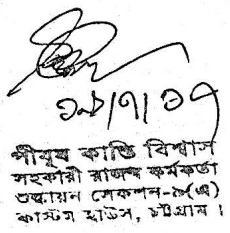 ১৯/৭/১৭
পীযুষ কান্তি বিশ্বাস
সহকারী রাজস্ব কর্মকর্তা
শুল্কায়ন সেকশন-৯(এ)
কাস্টম হাউস, চট্টগ্রাম।